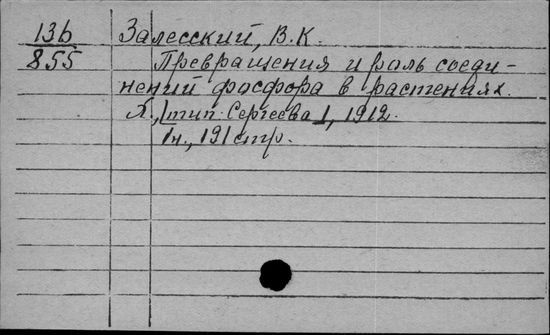 13b
Залесский, В.К.
855
Превращения и роль соеди-
нений фосфора в растениях.
Х., [тип. Сергеева], 1912.
1н., 191 стр.